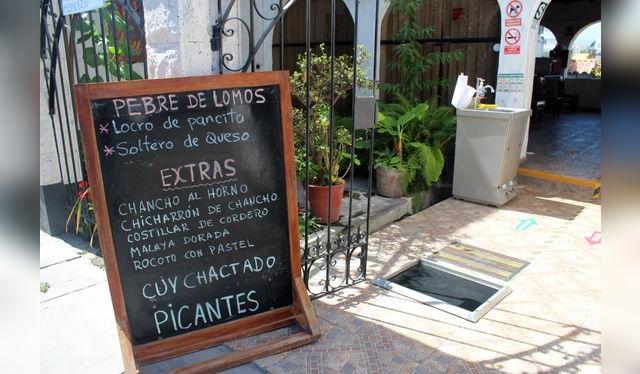 PEBRE DE LOMOS
* LOCRO de pancita
* SOLTERO de QUESO
EXTRAS
CHANCHO AL HORNO
CHICHARRÓN DE CHANCHO
COSTILLAR DE CORDERO
MALAYA DORADA
ROCOTO CON PASTEL
CUY CHACTADO
PICANTES